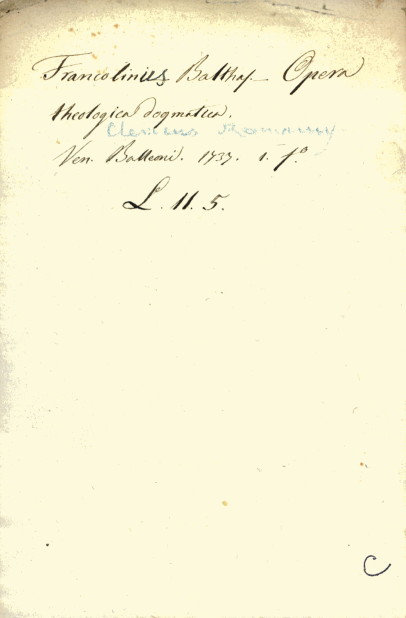 Francolinus Balthas. Opera
theologica dogmatica.
Clemens Romanus
Ven. Balleoni. 1737. 1. fº.
L. 11. 5.
C